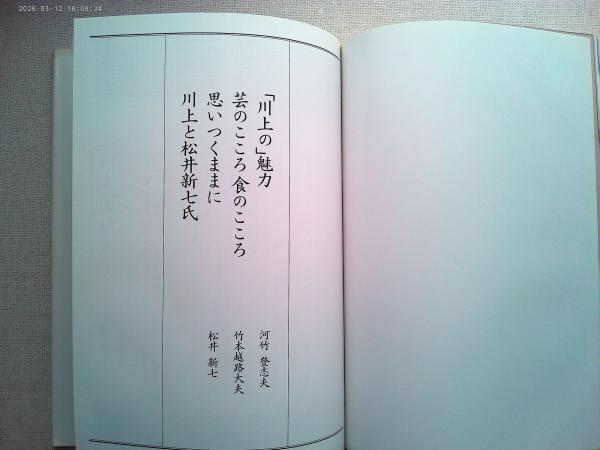 2026-03-12 16:08:34
「川上の」魅力
河竹 登志夫
芸のこころ食のこころ
竹本越路大夫
思いつくままに
松井 新七
川上と松井新七氏